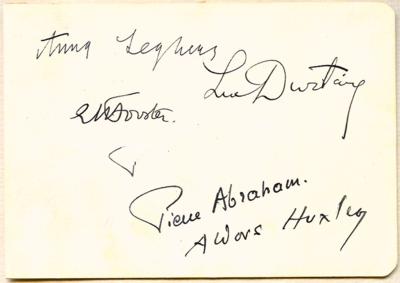 Anna Seghers
Luc Durtain
E M Forster.
Pierre Abraham.
Aldous Huxley